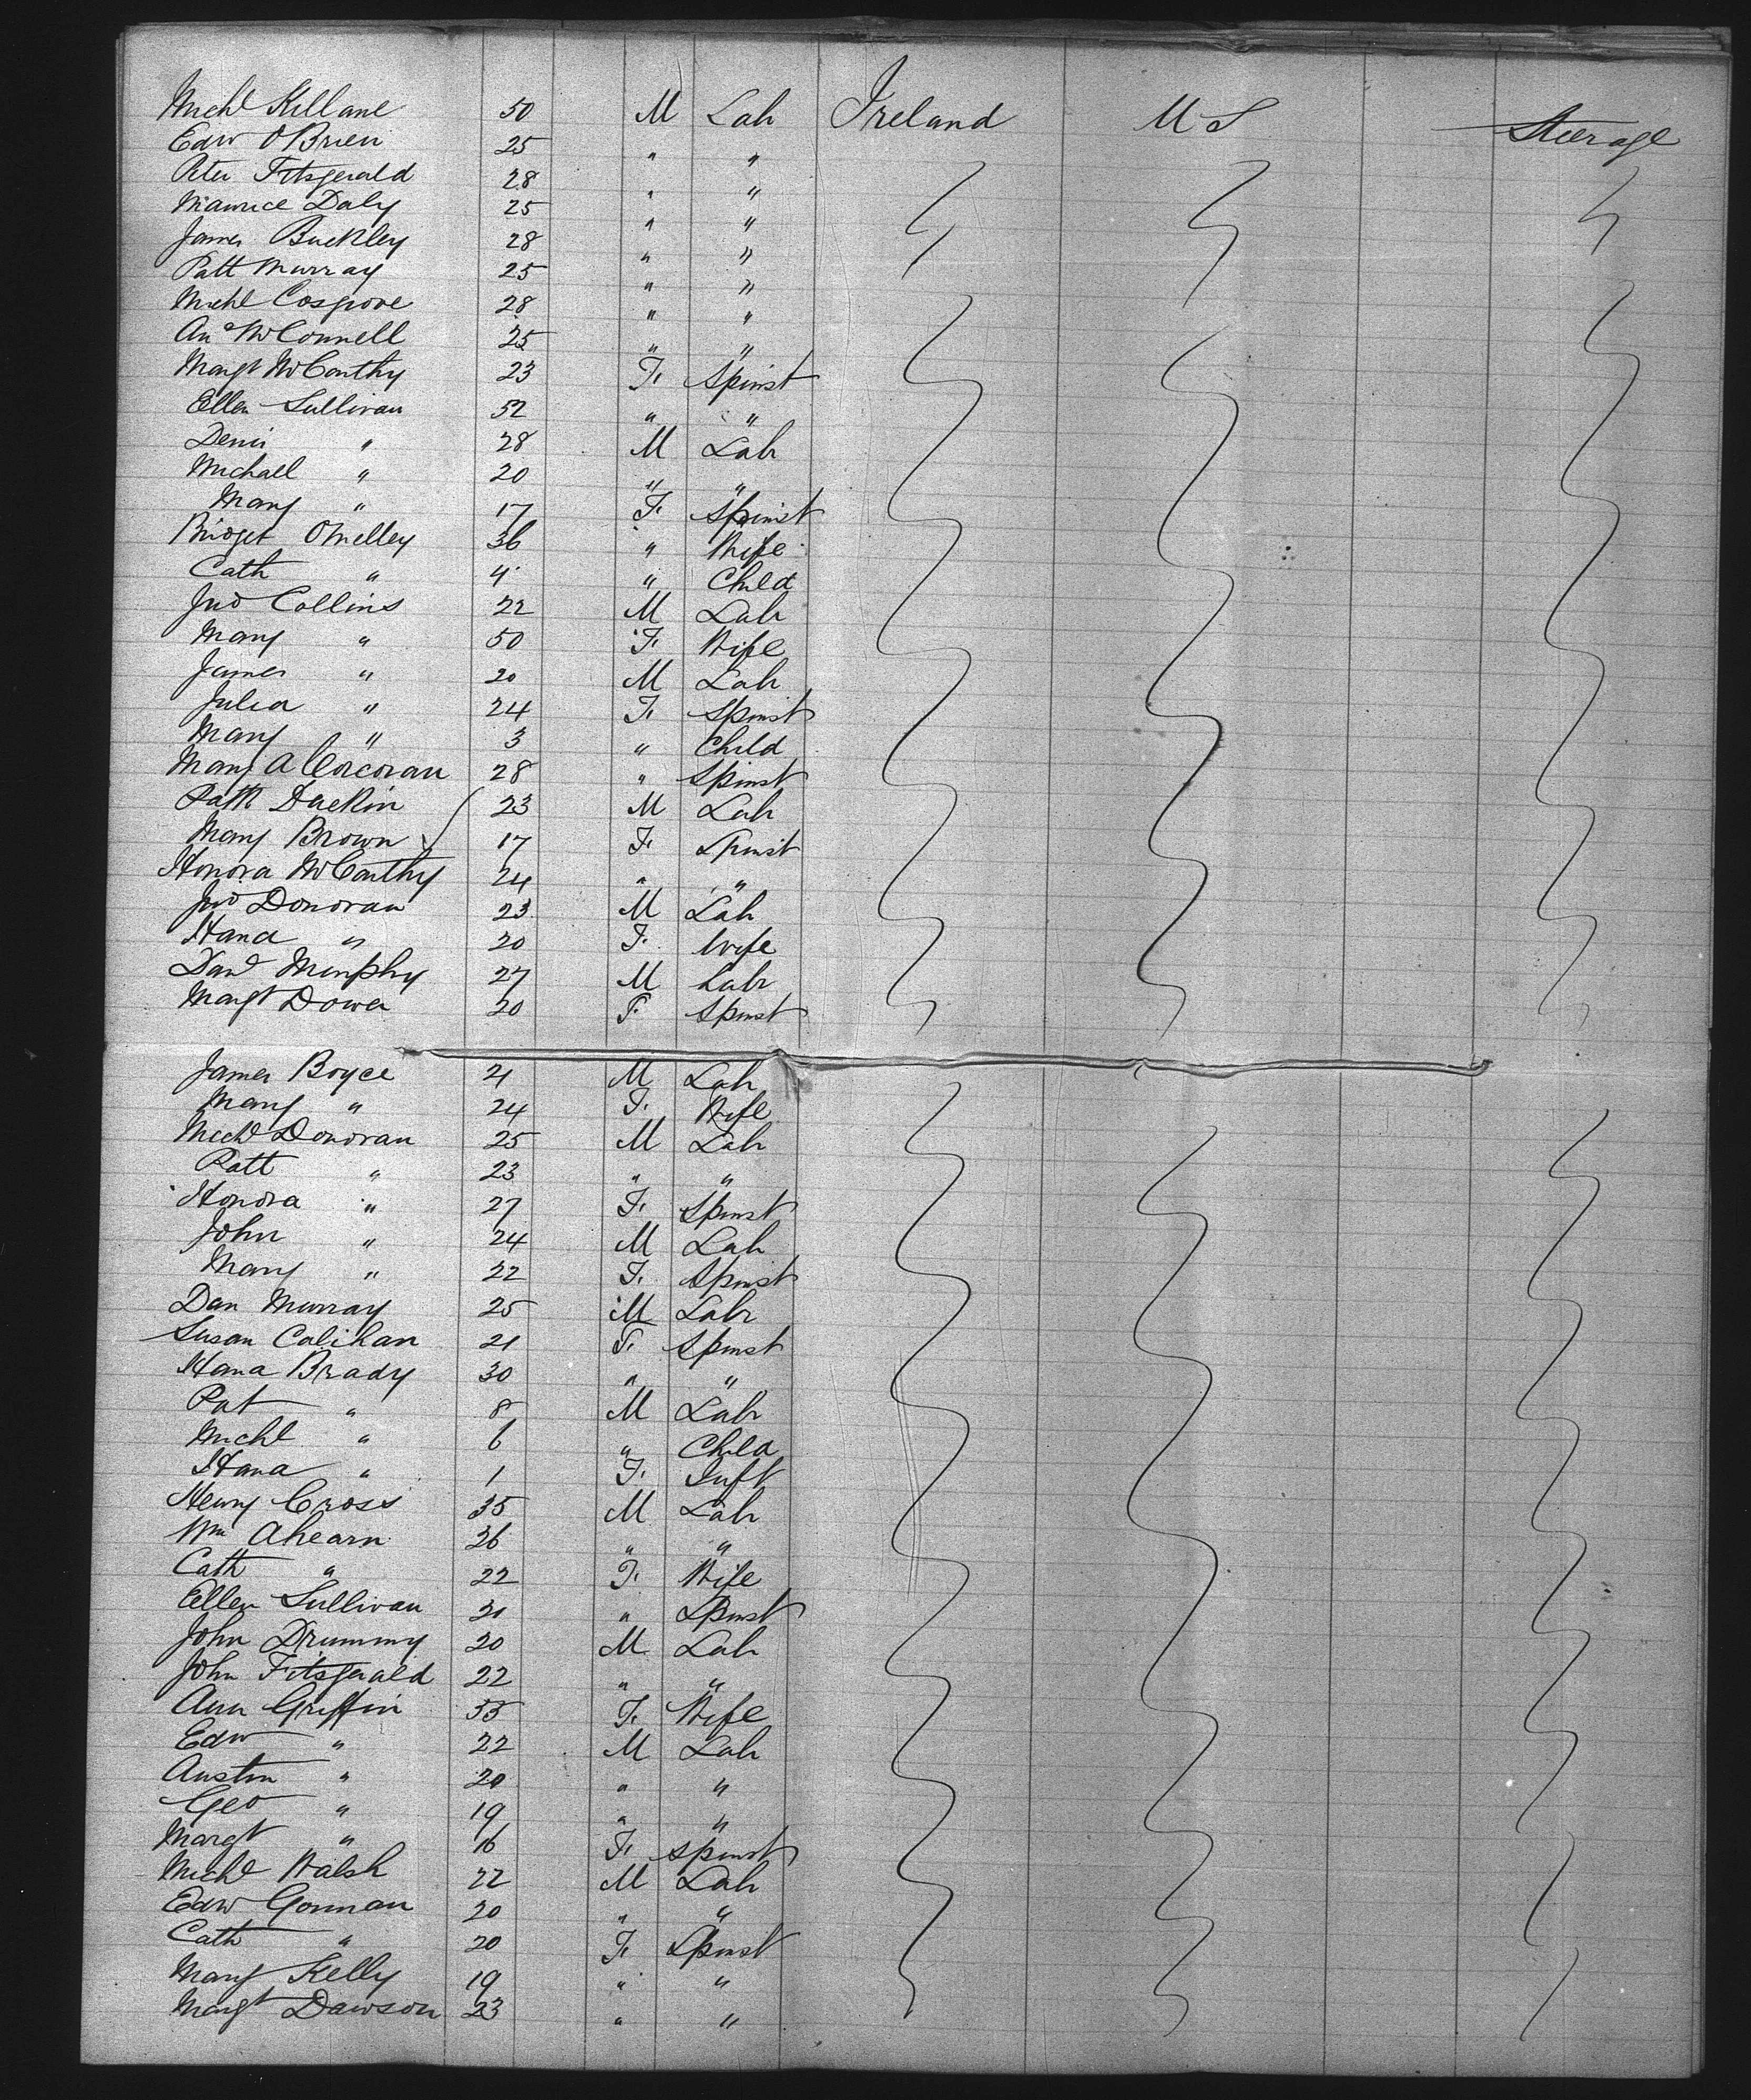 Michl Killane 50 M Lab Ireland U S Steerage
Edw O'Brien 25 " "
Peter Fitzgerald 28 " "
Maurice Daly 25 " "
James Buckley 28 " "
Patt Murray 25 " "
Michl Cosgrove 28 " "
McConnell 25 " "
Margt McCarthy 23 F. Spinst
Ellen Sullivan 52 " "
Denis " 28 M Lab
Michael " 20 " "
Mary " 17 F. Spinst
Bridget OMelley 36 " Wife
Cath " 4 " Child
Jno Collins 22 M Lab
Mary " 50 F. Wife
James " 20 M Lab
Julia " 24 F. Spinst
Mary " 3 " Child
Mary A Corcoran 28 " Spinst
Patk Dackin 23 M Lab
Mary Brown 17 F. Spinst
Honora McCarthy 24 " "
Jno Donovan 23 M Lab
Hana " 20 F. Wife
Danl Murphy 27 M Labr
Margt Dower 20 F. Spinst
James Boyce 21 M Lab
Mary " 24 F. Wife
Michl Donovan 25 M Lab
Patt " 23 " "
Honora " 27 F. Spinst
John " 24 M Lab
Mary " 22 F. Spinst
Dan Murray 25 M Labr
Susan Calihan 21 F. Spinst
Hana Brady 30 " "
Pat " 8 M Labr
Michl " 6 " Child
Hana " 1 F. Inft
Henry Cross 35 M Lab
Wm Ahearn 26 " "
Cath " 22 F. Wife
Ellen Sullivan " Spinst
John Drummy 20 M Lab
John Fitzgerald 22 " "
Ann Griffin 55 F. Wife
Edw " 22 M Lab
Austin " 20 " "
Geo " 19 " "
Margt " 16 F. Spinst
Michl Walsh 22 M Lab
Edw Gorman 20 " "
Cath " 20 F. Spinst
Mary Kelly 19 " "
Margt Dawson 23 " "